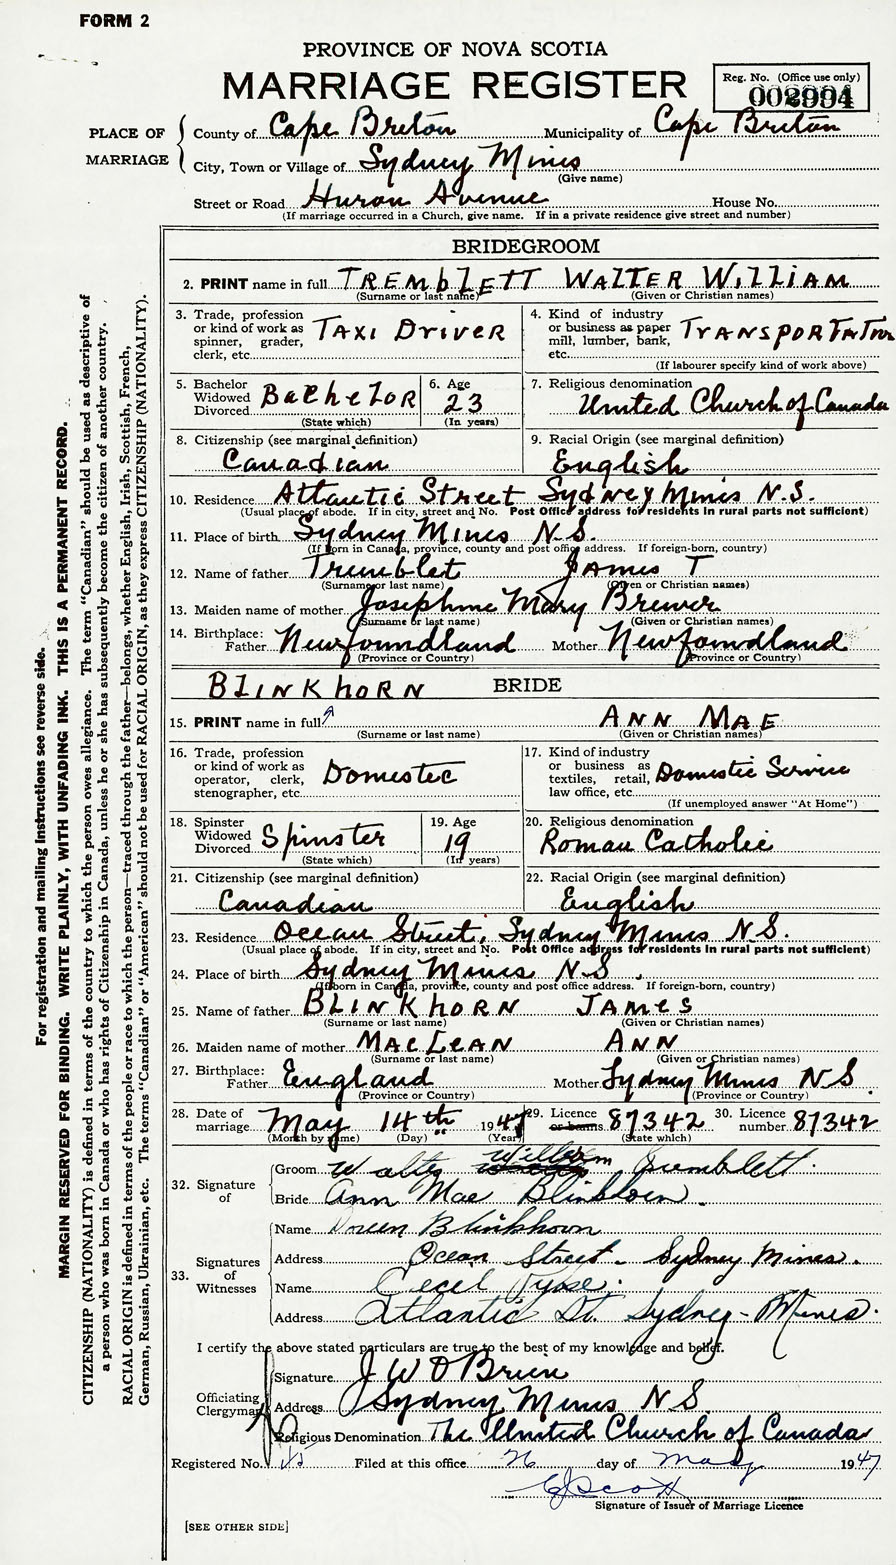 FORM 2
PROVINCE OF NOVA SCOTIA
MARRIAGE REGISTER
Reg. No. (Office use only)
002994
PLACE OF MARRIAGE
County of Cape Breton Municipality of Cape Breton
City, Town or Village of Sydney Mines
(Give name)
Street or Road Huron Avenue House No.
(If marriage occurred in a Church, give name. If in a private residence give street and number)
BRIDEGROOM
2. PRINT name in full TREMbLETT WALTER WILLIAM
(Surname or last name) (Given or Christian names)
3. Trade, profession or kind of work as spinner, grader, clerk, etc. TAXI DRIVER
4. Kind of industry or business as paper mill, lumber, bank, etc. TRANSPORTATION
(If labourer specify kind of work above)
5. Bachelor Widowed Divorced BachelOR
(State which)
6. Age 23
(In years)
7. Religious denomination United Church of Canada
8. Citizenship (see marginal definition)
Canadian
9. Racial Origin (see marginal definition)
English
10. Residence Atlantic Street Sydney Mines N.S.
(Usual place of abode. If in city, street and No. Post Office address for residents in rural parts not sufficient)
11. Place of birth Sydney Mines N.S.
(If born in Canada, province, county and post office address. If foreign-born, country)
12. Name of father Tremblet James T
(Surname or last name) (Given or Christian names)
13. Maiden name of mother Josephine Mary Brewer
(Surname or last name) (Given or Christian names)
14. Birthplace: Father Newfoundland Mother Newfoundland
(Province or Country) (Province or Country)
BLINKhORN BRIDE
15. PRINT name in full ANN MAE
(Surname or last name) (Given or Christian names)
16. Trade, profession or kind of work as operator, clerk, stenographer, etc. Domestec
17. Kind of industry or business as textiles, retail, law office, etc. Domestic Service
(If unemployed answer "At Home")
18. Spinster Widowed Divorced Spinster
(State which)
19. Age 19
(In years)
20. Religious denomination
Roman Catholic
21. Citizenship (see marginal definition)
Canadian
22. Racial Origin (see marginal definition)
English
23. Residence Ocean Street, Sydney Mines N.S.
(Usual place of abode. If in city, street and No. Post Office address for residents in rural parts not sufficient)
24. Place of birth Sydney Mines N.S.
(If born in Canada, province, county and post office address. If foreign-born, country)
25. Name of father BLINKhORN JAMES
(Surname or last name) (Given or Christian names)
26. Maiden name of mother MacLEAN ANN
(Surname or last name) (Given or Christian names)
27. Birthplace: Father England Mother Sydney Mines N S
(Province or Country) (Province or Country)
28. Date of marriage May 14th 1947 29. Licence or banns 87342 30. Licence number 87342
(Month by name) (Day) (Year) (State which)
32. Signature of
Groom Walter William Tremblett.
Bride Ann Mae Blinkhorn.
33. Signatures of Witnesses
Name Doreen Blinkhorn
Address Ocean Street. Sydney Mines.
Name Cecil Vyse.
Address Atlantic St. Sydney-Mines.
I certify the above stated particulars are true to the best of my knowledge and belief.
Officiating Clergyman
Signature J W O'Brien
Address Sydney Mines N.S.
Religious Denomination The United Church of Canada
Registered No. Filed at this office 26 day of May 1947
Signature of Issuer of Marriage Licence
[SEE OTHER SIDE]
For registration and mailing instructions see reverse side.
MARGIN RESERVED FOR BINDING. WRITE PLAINLY, WITH UNFADING INK. THIS IS A PERMANENT RECORD.
CITIZENSHIP (NATIONALITY) is defined in terms of the country to which the person owes allegiance. The term "Canadian" should be used as descriptive of
a person who was born in Canada or who has rights of Citizenship in Canada, unless he or she has subsequently become the citizen of another country.
RACIAL ORIGIN is defined in terms of the people or race to which the person—traced through the father—belongs, whether English, Irish, Scottish, French,
German, Russian, Ukrainian, etc. The terms "Canadian" or "American" should not be used for RACIAL ORIGIN, as they express CITIZENSHIP (NATIONALITY).